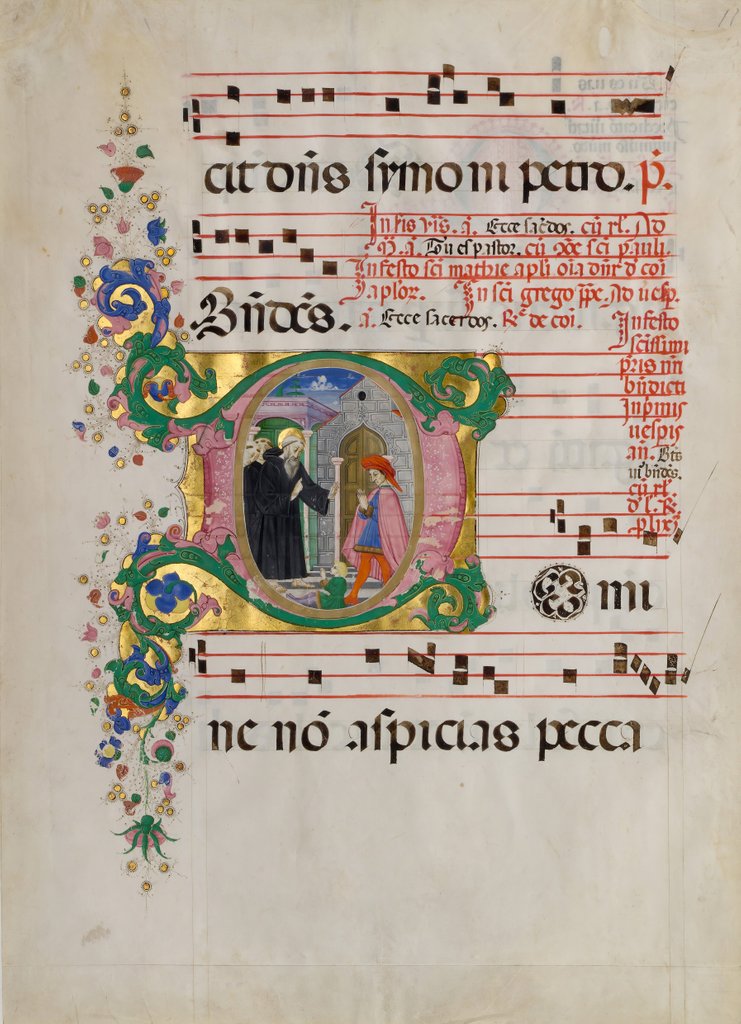 cit dn̄s symoni petro. p̄.
In fis vīs. a. Ecce sac̄dos. cū rl. Ad
Tu es pastor. cū ōoe sc̄i pauli.
In festo sc̄i mathie apl̄i oīa dn̄r d̄ coī
aplor. In sc̄i grego p̄pe. Ad uesp.
Bn̄dc̄s. a. Ecce sacerdos. R. de coī.
In festo
scissimi
pris nr̄i
bn̄dicti
In pmis
uespis
an. Bts
uir bn̄dcs.
cū rl.
d' l. R.
plixū
D
mi
ne nō aspicias pecca